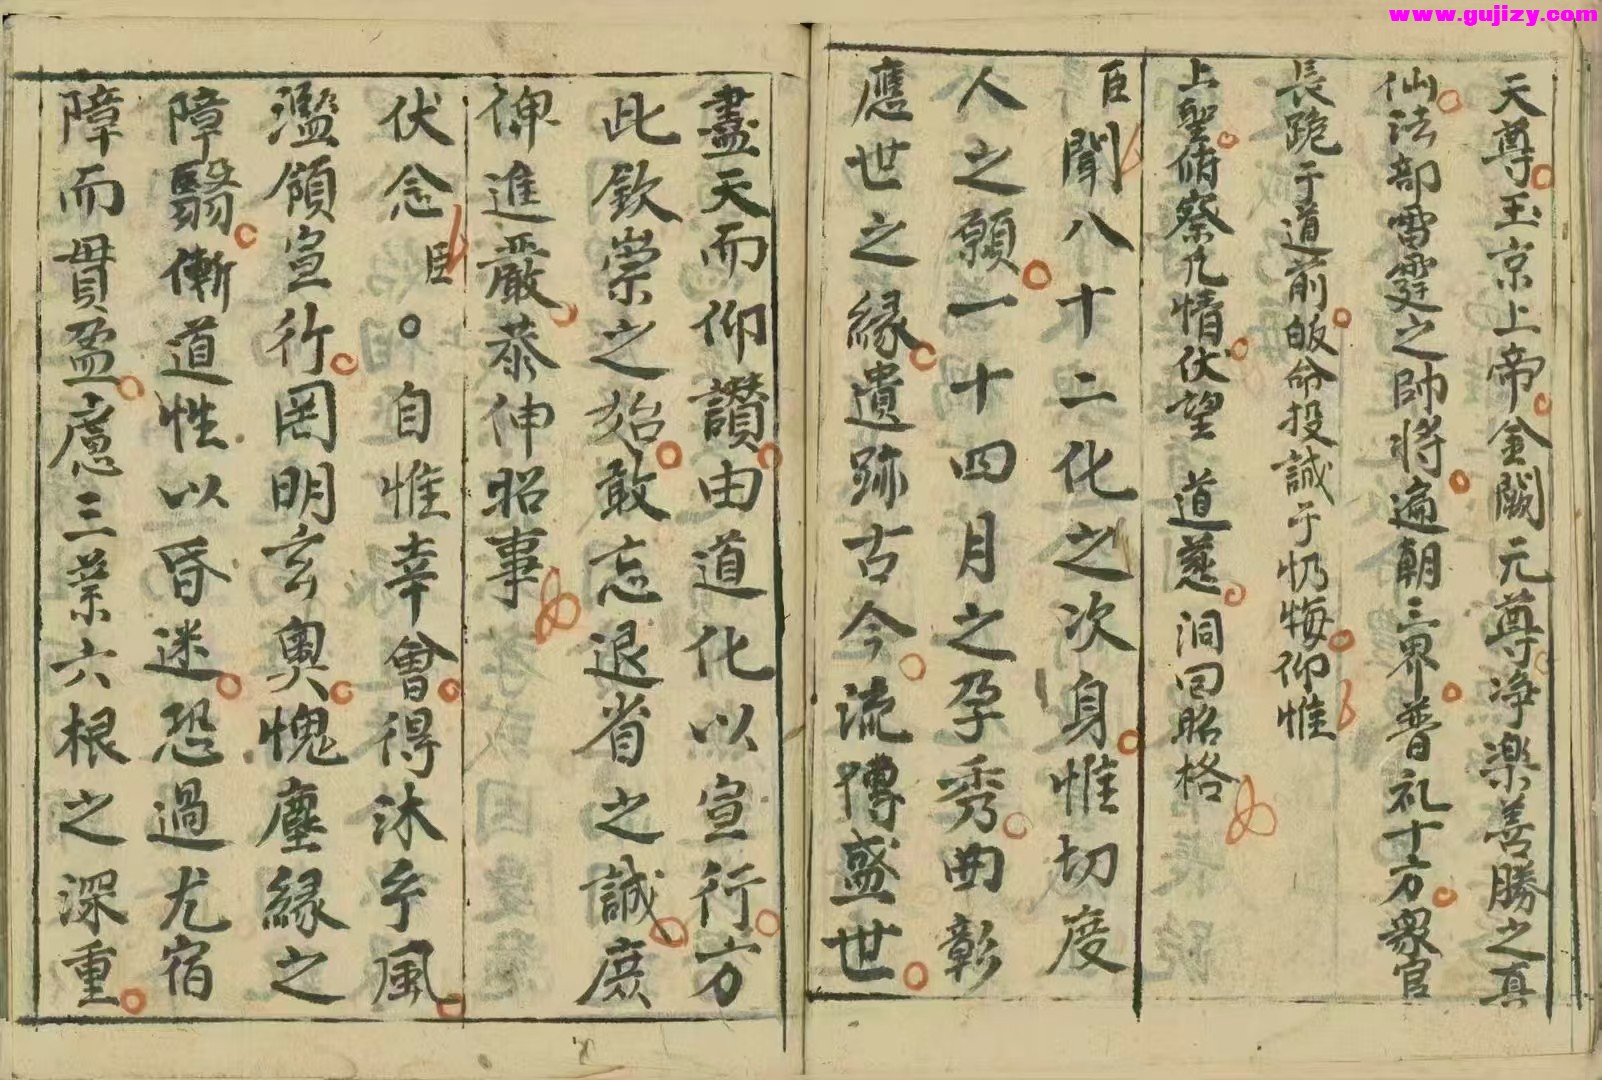 www.gujizy.com
天尊玉京上帝金闕元尊净樂善勝之真
仙法部雷霆之帥將遍朝三界普礼十方眾官
長跪于道前皈命投誠于忉悔仰惟
上聖俯察凡情伏望 道慈 洞回昭格
臣聞八十二化之次身惟切度
人之願一十四月之孕秀曲彰
應世之緣遺跡古今流傳盛世
盡天而仰讚由道化以宣行方
此欽崇之始敢忘退省之誠庶
伸進嚴恭伸昭事
伏念臣。自惟幸會得沐乎風
濫領宣行罔明玄奧愧塵緣之
障翳慚道性以昏迷恐過尤宿
障而貫盈慮三業六根之深重